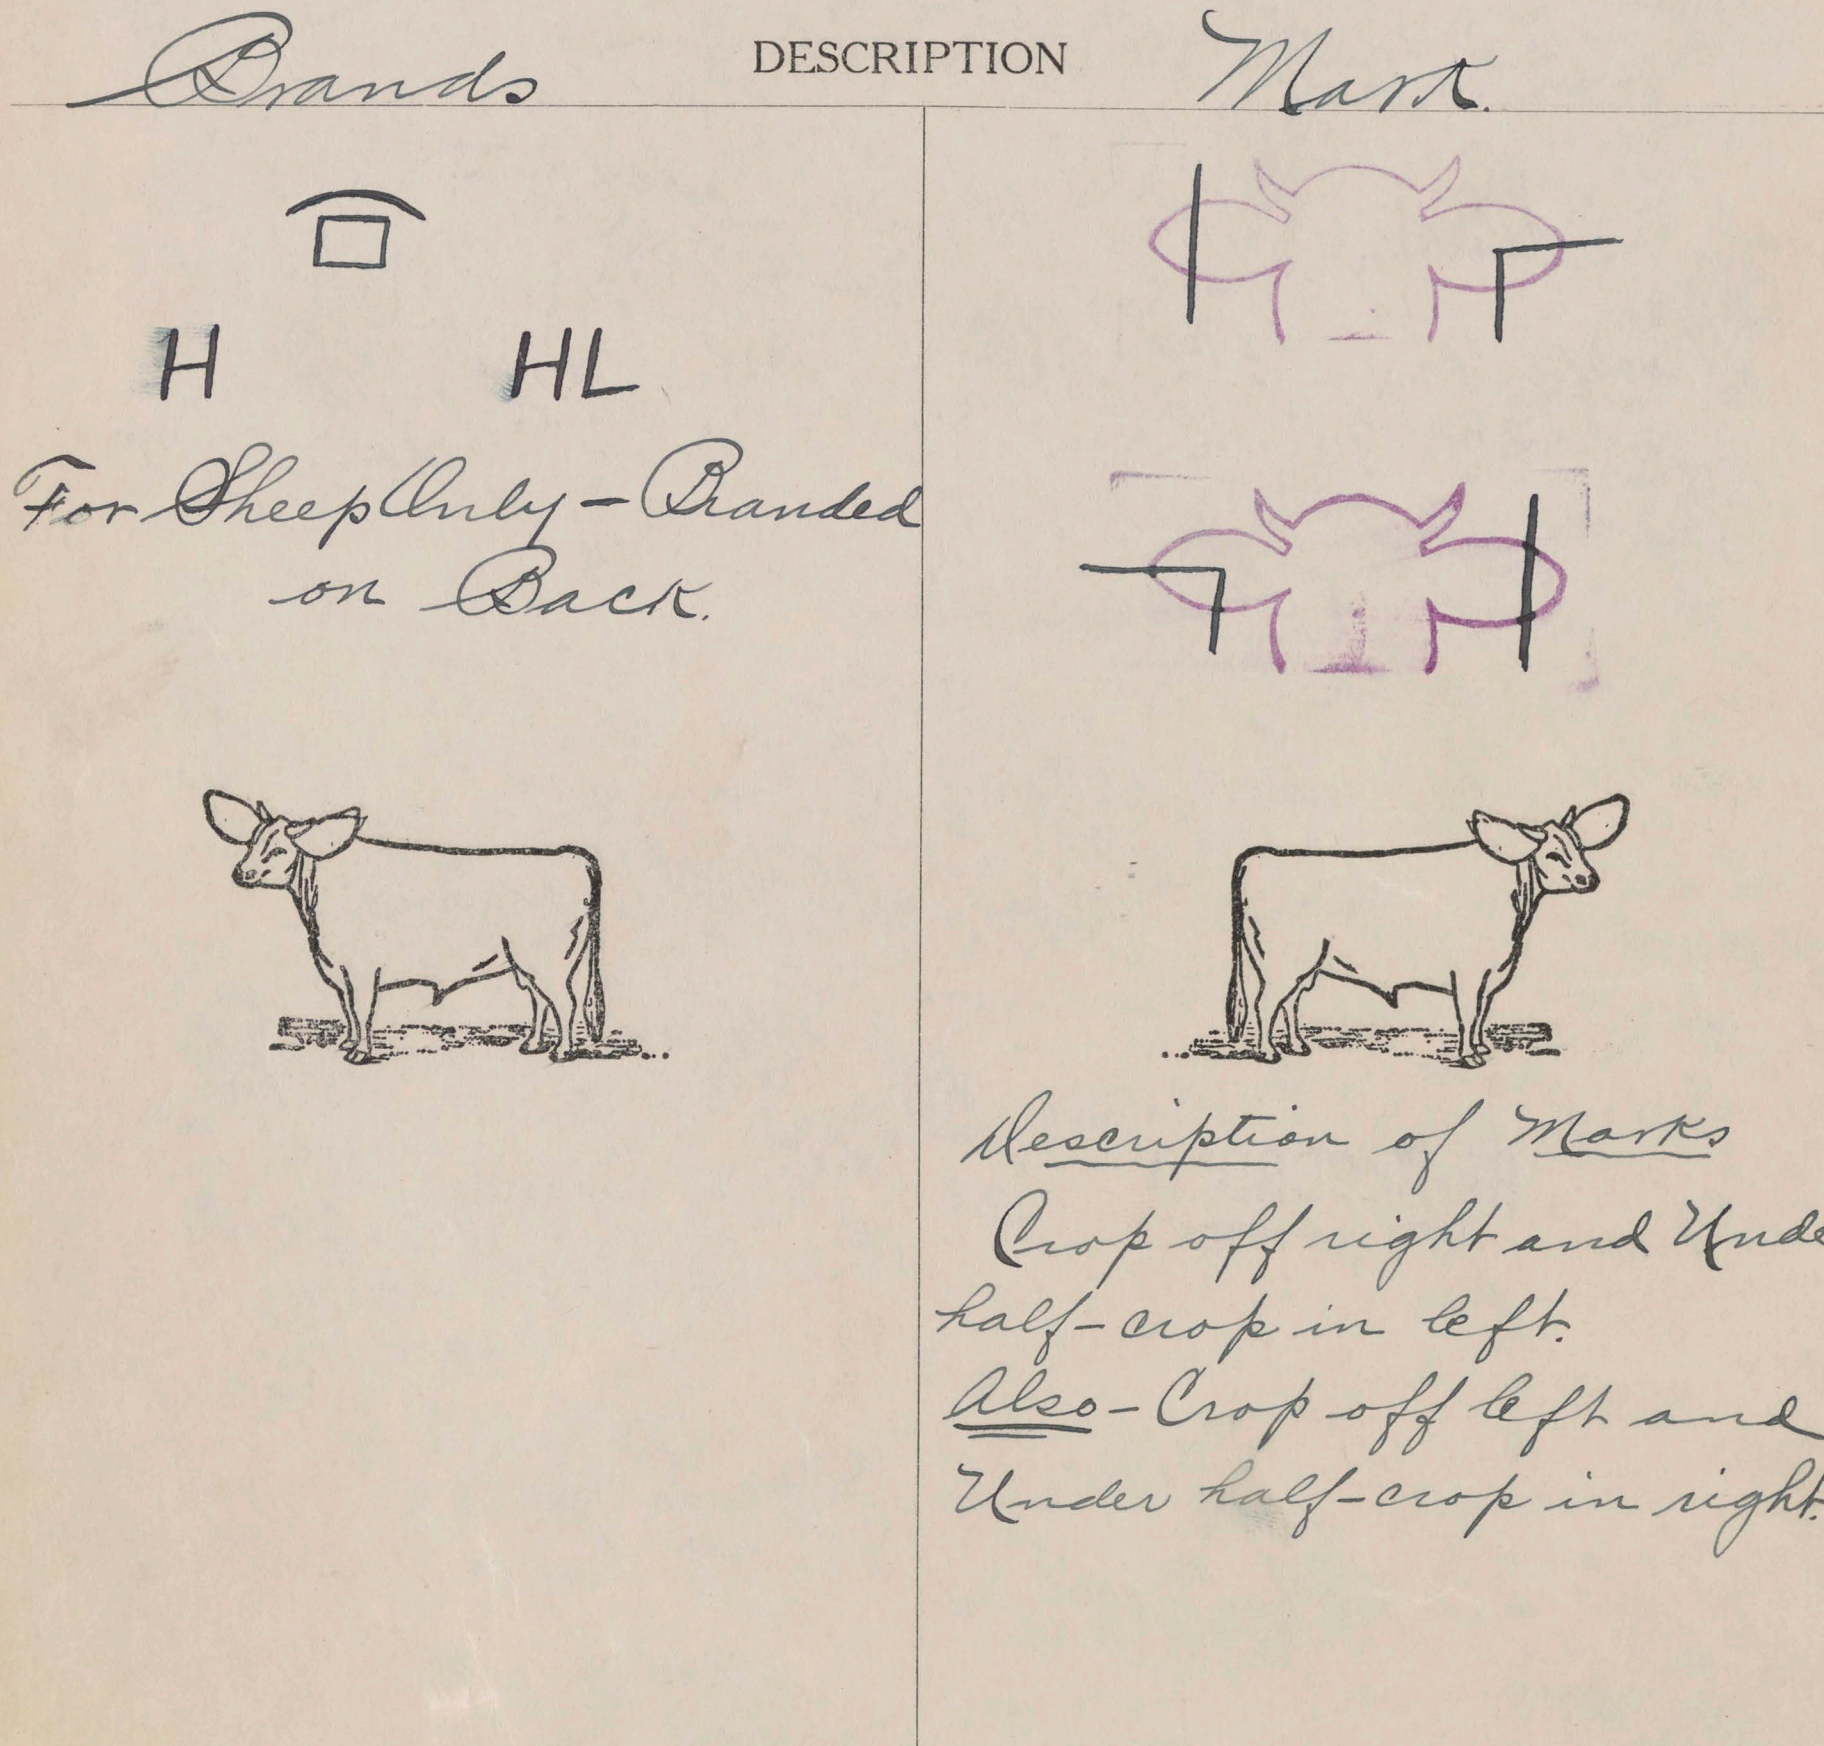 Brands DESCRIPTION Mark.
H HL
For Sheep Only - Branded
on Back.
Description of Marks
Crop off right and Unde
half-crop in left.
Also - Crop off left and
Under half-crop in right.